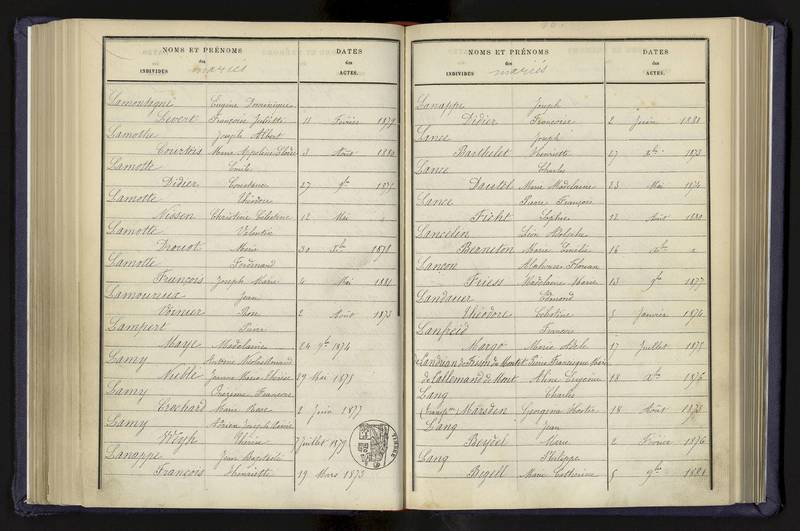 NOMS ET PRÉNOMS
des
INDIVIDUS mariés
DATES
des
ACTES.
Lamontagne Eugène Dominique
Levert Françoise 11 Février 1879
Lamothe Joseph Albert
Courtois Marie 3 Août 1880
Lamotte Emile
Didier Constance 27 9bre 1875
Lamotte Théodore
Nissen Christine Célestine 12 Mai
Lamotte Valentin
Drouot Marie 30 Xbre 1878
Lamotte Ferdinand
François Joseph Marie 4 Mai 1881
Lamoureux Jean
Vornier Rose 2 Août 1873
Lampert Pierre
Maye Madelaine 24 9bre 1874
Lamy Antoine Nicolas
Noihle Jeanne Marie Thérèse 29 Mai 1875
Lamy Onezime François
Crochard Marie Rose 2 Juin 1877
Lamy Adrien Joseph
Weyh Thérèse 7 Juillet 1879
Lanappe Jean Baptiste
François Henriette 19 Mars 1873
NOMS ET PRÉNOMS
des
INDIVIDUS mariés
DATES
des
ACTES.
Lanappe Joseph
Didier Françoise 2 Juin 1881
Lance Joseph
Barthelet Henriette 27 Xbre 1873
Lance Charles
Marie Madelaine 23 Mai 1874
Lance Pierre François
Ficht Sophie 12 Août 1880
Lancelin Léon
Marie Emélie 16 Xbre
Lançon Florian
Friess Madelaine Marie 13 9bre 1877
Landauer Edmond
Théodore Célestine 5 Janvier 1874
François
Margo Marie Adèle 17 Juillet 1875
Pierre
de Lallemand de Mont Aline Eugénie 18 Xbre 1876
Lang Charles
Marsden Georgina 18 Août 1873
Lang Jean
Beydel Marie 2 Février 1876
Lang Philippe
Regell Marie Catherine 5 9bre 1881